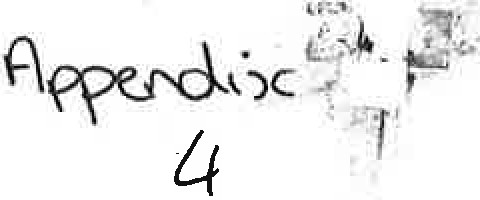 Appendix
4